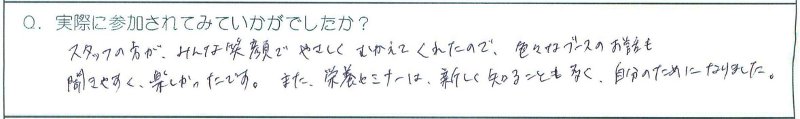 Q. 実際に参加されてみていかがでしたか？
スタッフの方が、みんな笑顔でやさしくむかえてくれたので、色々なブースのお話も
聞きやすく、楽しかったです。また、栄養セミナーは、新しく知ることも多く、自分のためになりました。